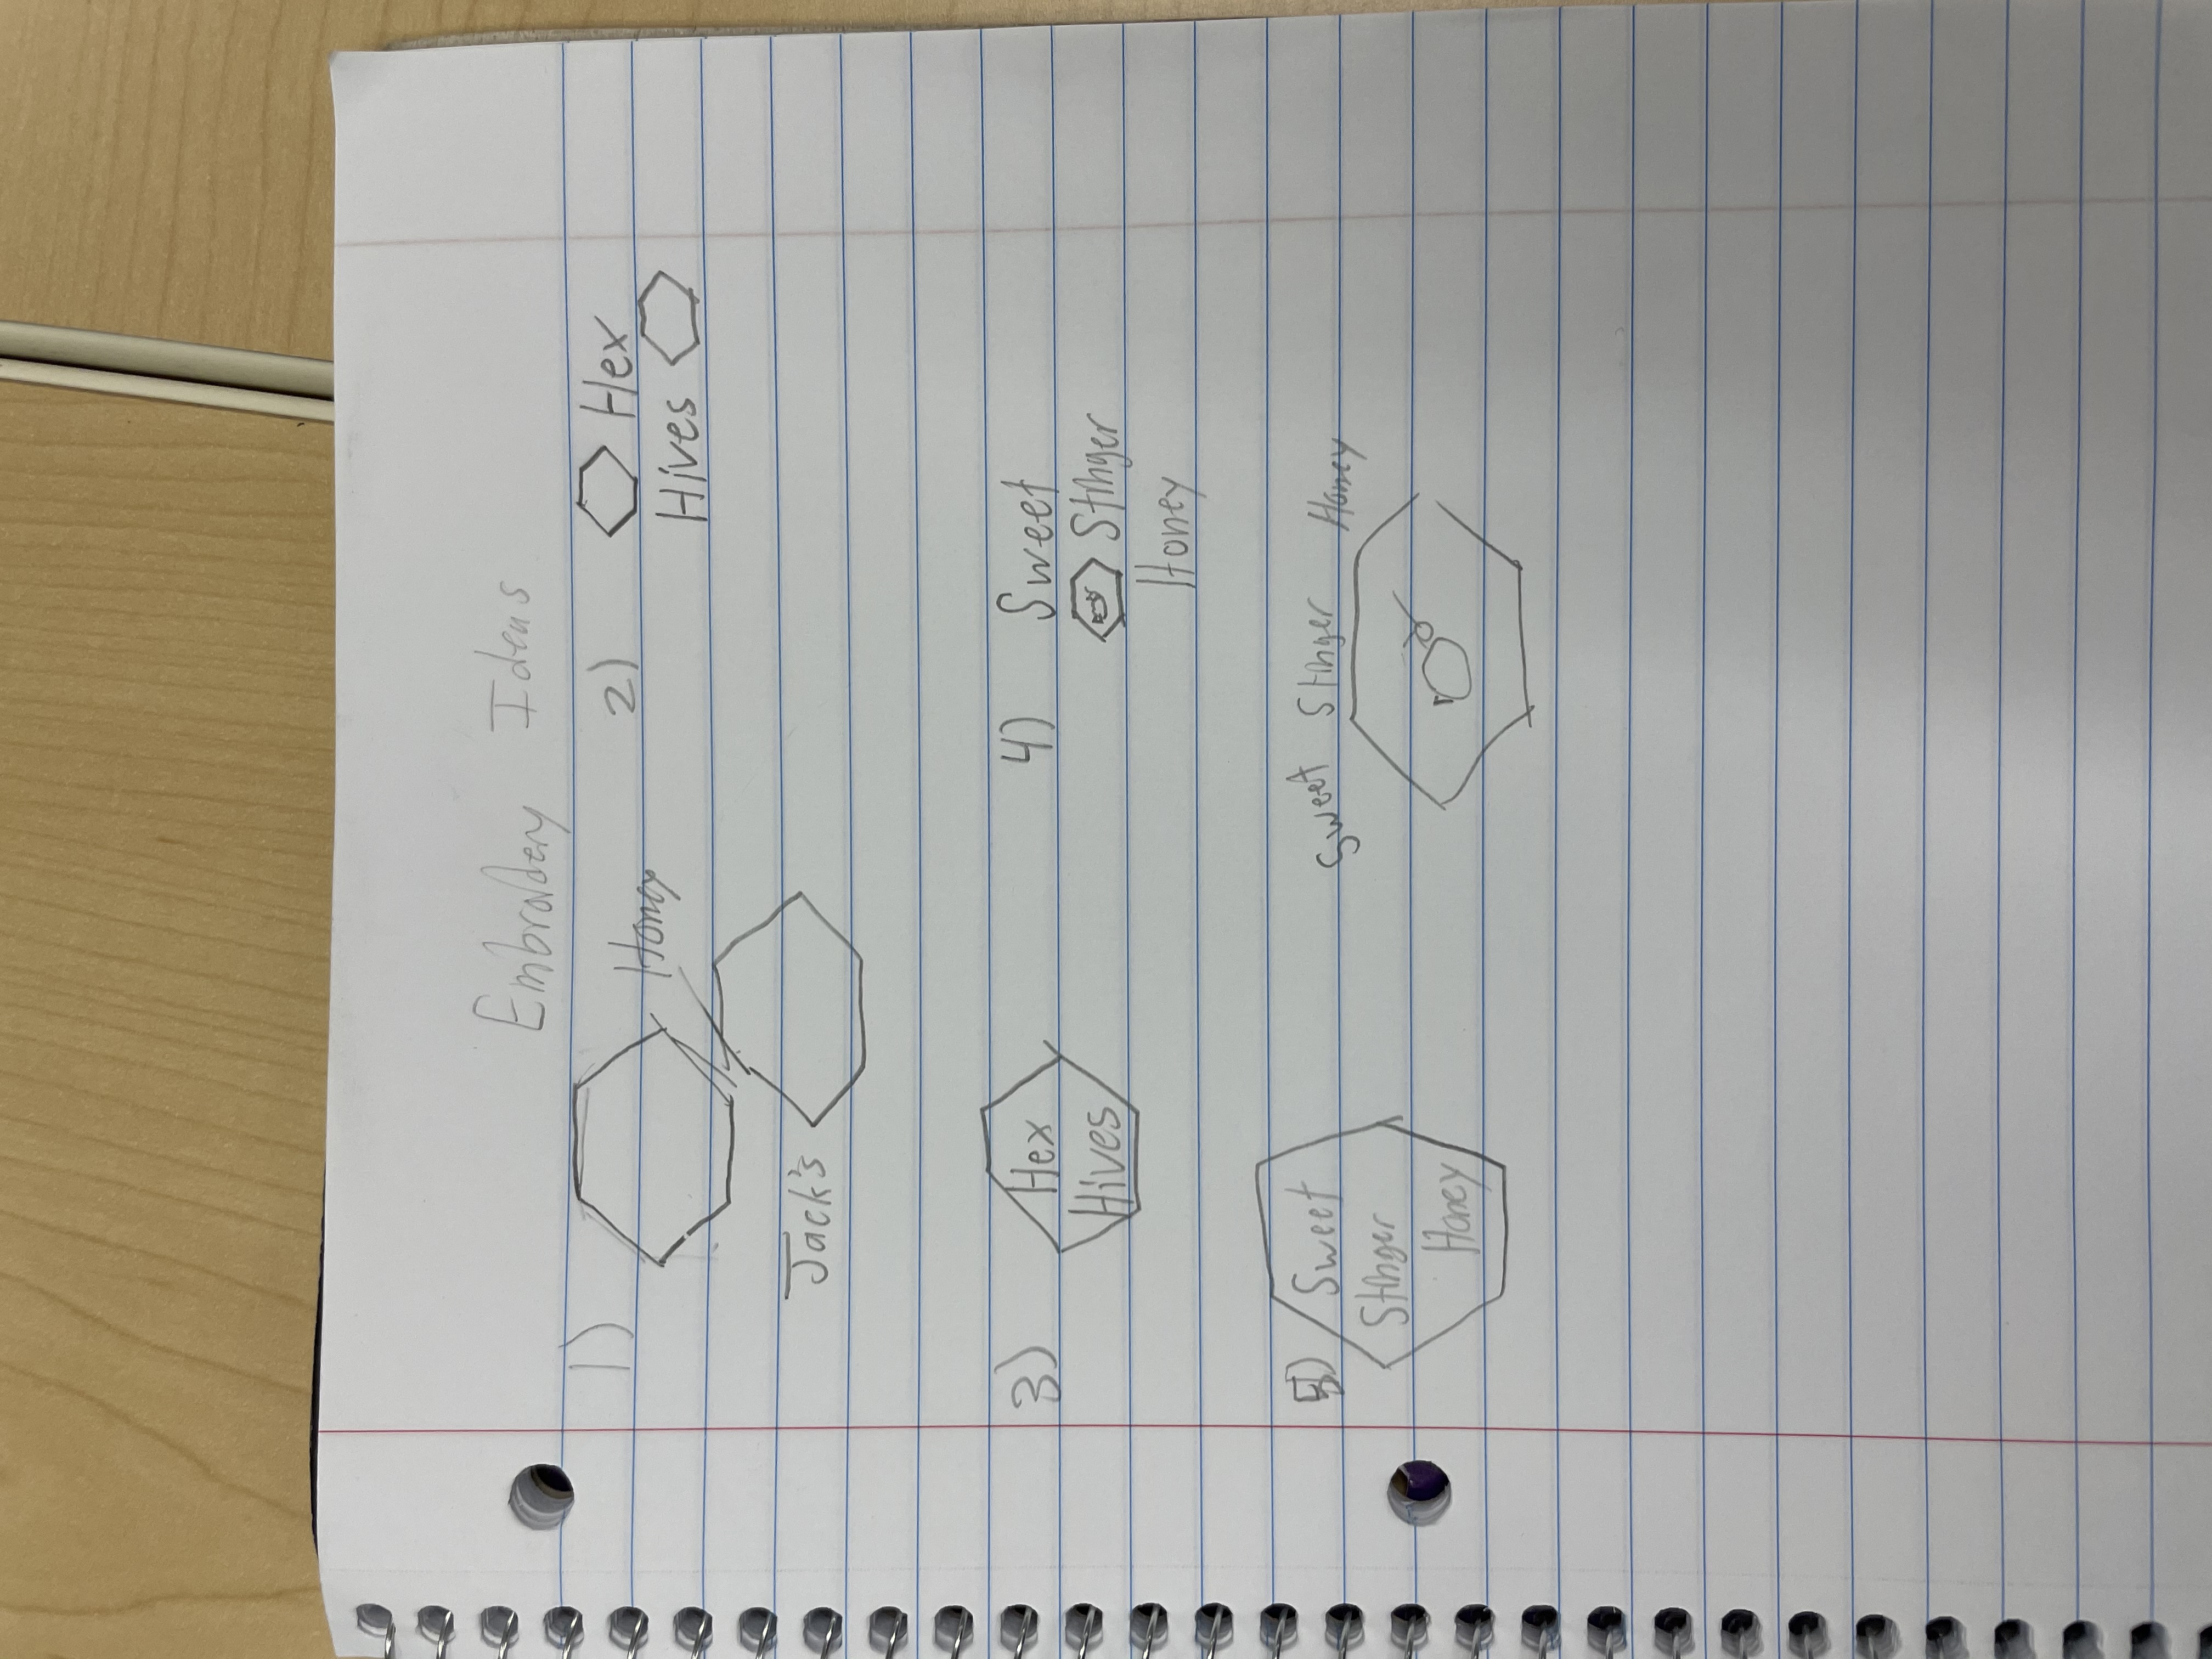 Embroidery Ideas
1)
Honey
Jack's
2)
Hex
Hives
3)
Hex
Hives
4)
Sweet
Stinger
Honey
5)
Sweet
Stinger
Honey
Sweet Stinger Honey